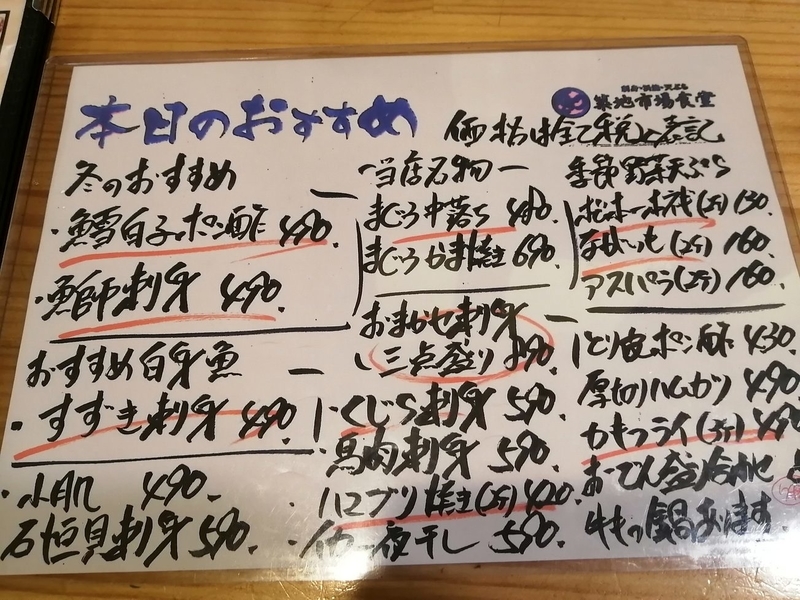 本日のおすすめ
築地市場食堂
価格は全て税込表記
冬のおすすめ
・鱈白子ポン酢 490.
・鰤刺身 490.
おすすめ白身魚
・すずき刺身 490.
・小肌 490.
石垣貝刺身 590.
当店名物
まぐろ中落ち 490.
まぐろかま焼 690.
おまかせ刺身
三点盛り
・くじら刺身 590.
馬肉刺身 590.
・ハマグリ焼(2ケ) 420.
・イカ一夜干し 590.
季節野菜天ぷら
130.
(2ケ) 160.
アスパラ(2ケ) 160.
とり皮ポン酢 430.
厚切りハムカツ 490.
カキフライ(3ケ) 490
おでん盛り合わせ
牛もつ鍋あります